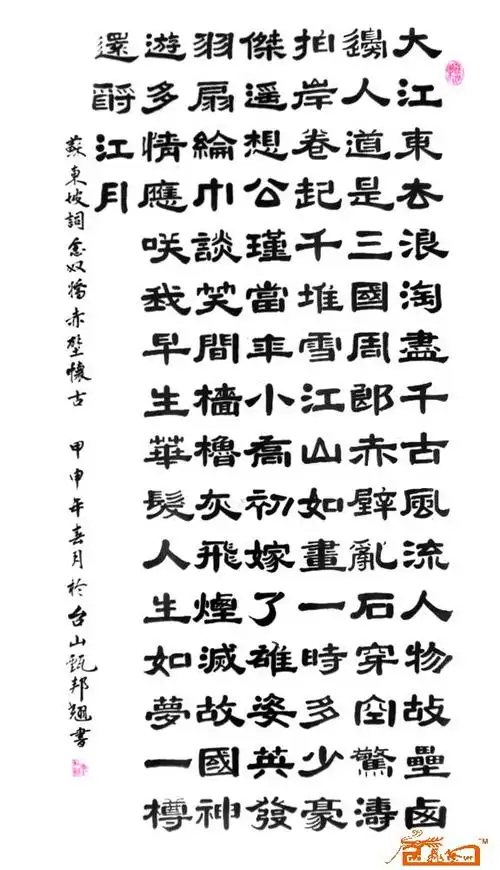 大江東去浪淘盡千古風流人物故壘西
邊人道是三國周郎赤壁亂石穿空驚濤
拍岸卷起千堆雪江山如畫一時多少豪
傑遥想公瑾當年小喬初嫁了雄姿英發
羽扇綸巾談笑間檣櫓灰飛煙滅故國神
遊多情應咲我早生華髮人生如夢一樽
還酹江月
蘇東坡詞念奴嬌赤壁懷古 甲申年春月於台山甄邦翹書